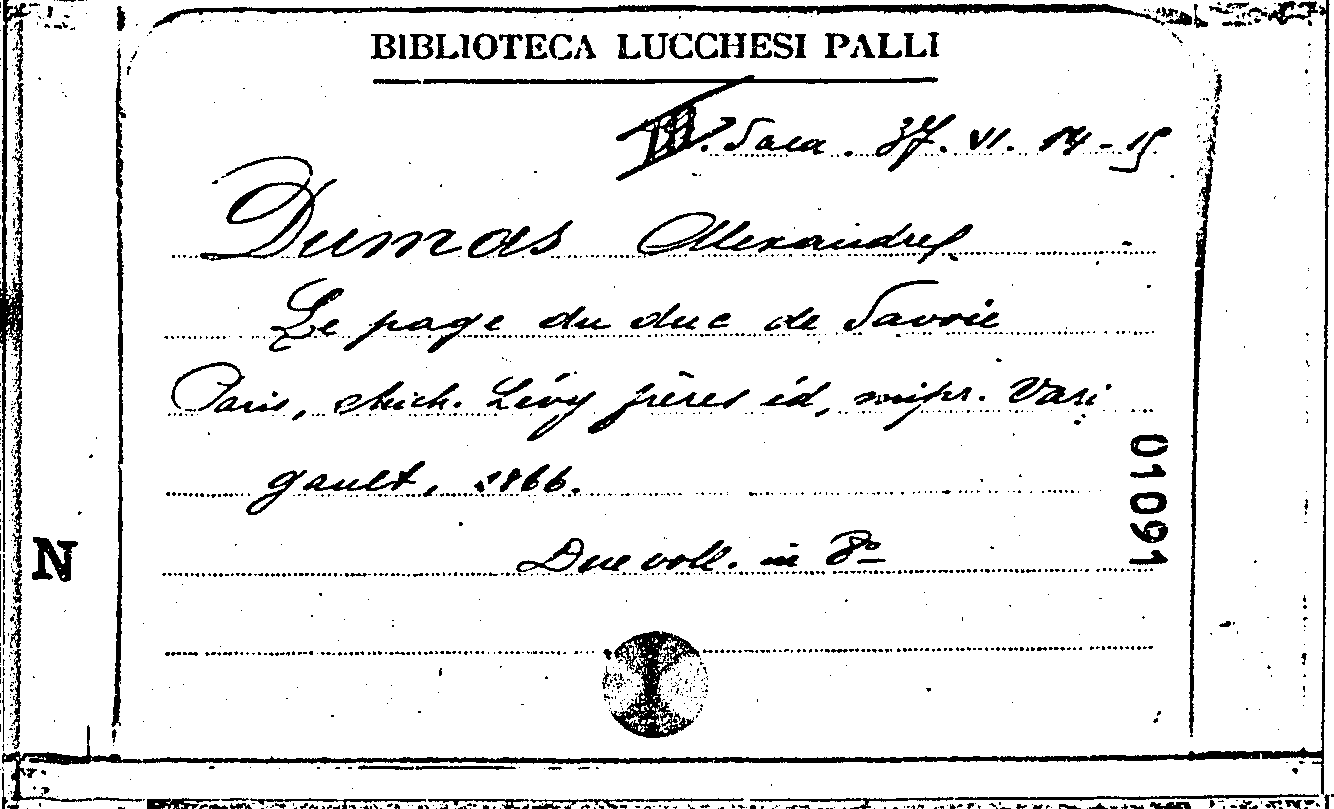 BIBLIOTECA LUCCHESI PALLI
Sala. 37. VI. 14-15
Dumas Alexandre
Le page du duc de Savoie
Paris, Mich. Lévy frères éd, impr. Vari
gault, 1866.
Due voll. in 8º
01091
N